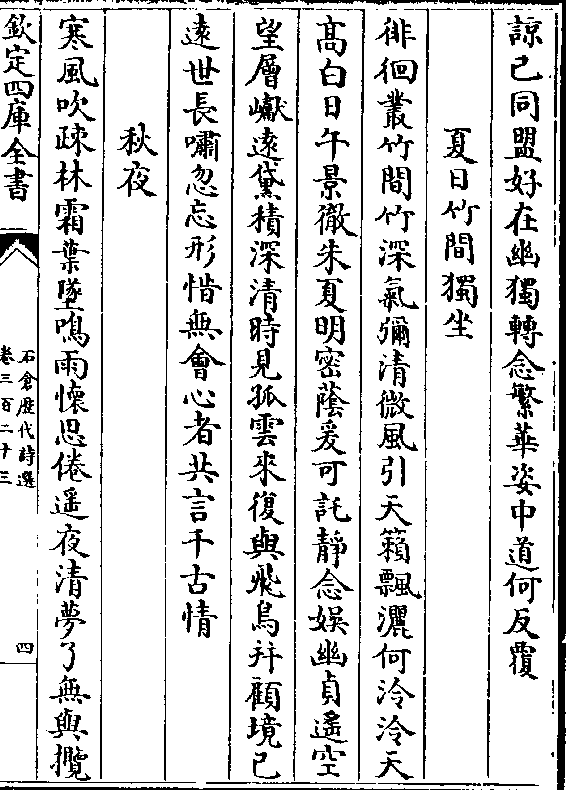 諒已同盟好在幽獨轉念繁華姿中道何反覆
夏日竹間獨坐
徘徊叢竹間竹深氣彌清微風引天籟飄灑何泠泠天
髙白日午景徹朱夏明密蔭爰可託靜念娱幽貞遙空
望層巘逺黛積深清時見孤雲來復與飛鳥并顧境已
逺世長嘯忽忘形惜無會心者共言千古情
秋夜
寒風吹疎林霜葉墜鳴雨懷思倦遥夜清夢了無與攬
欽定四庫全書
石倉歷代詩選
卷三百二十三
四